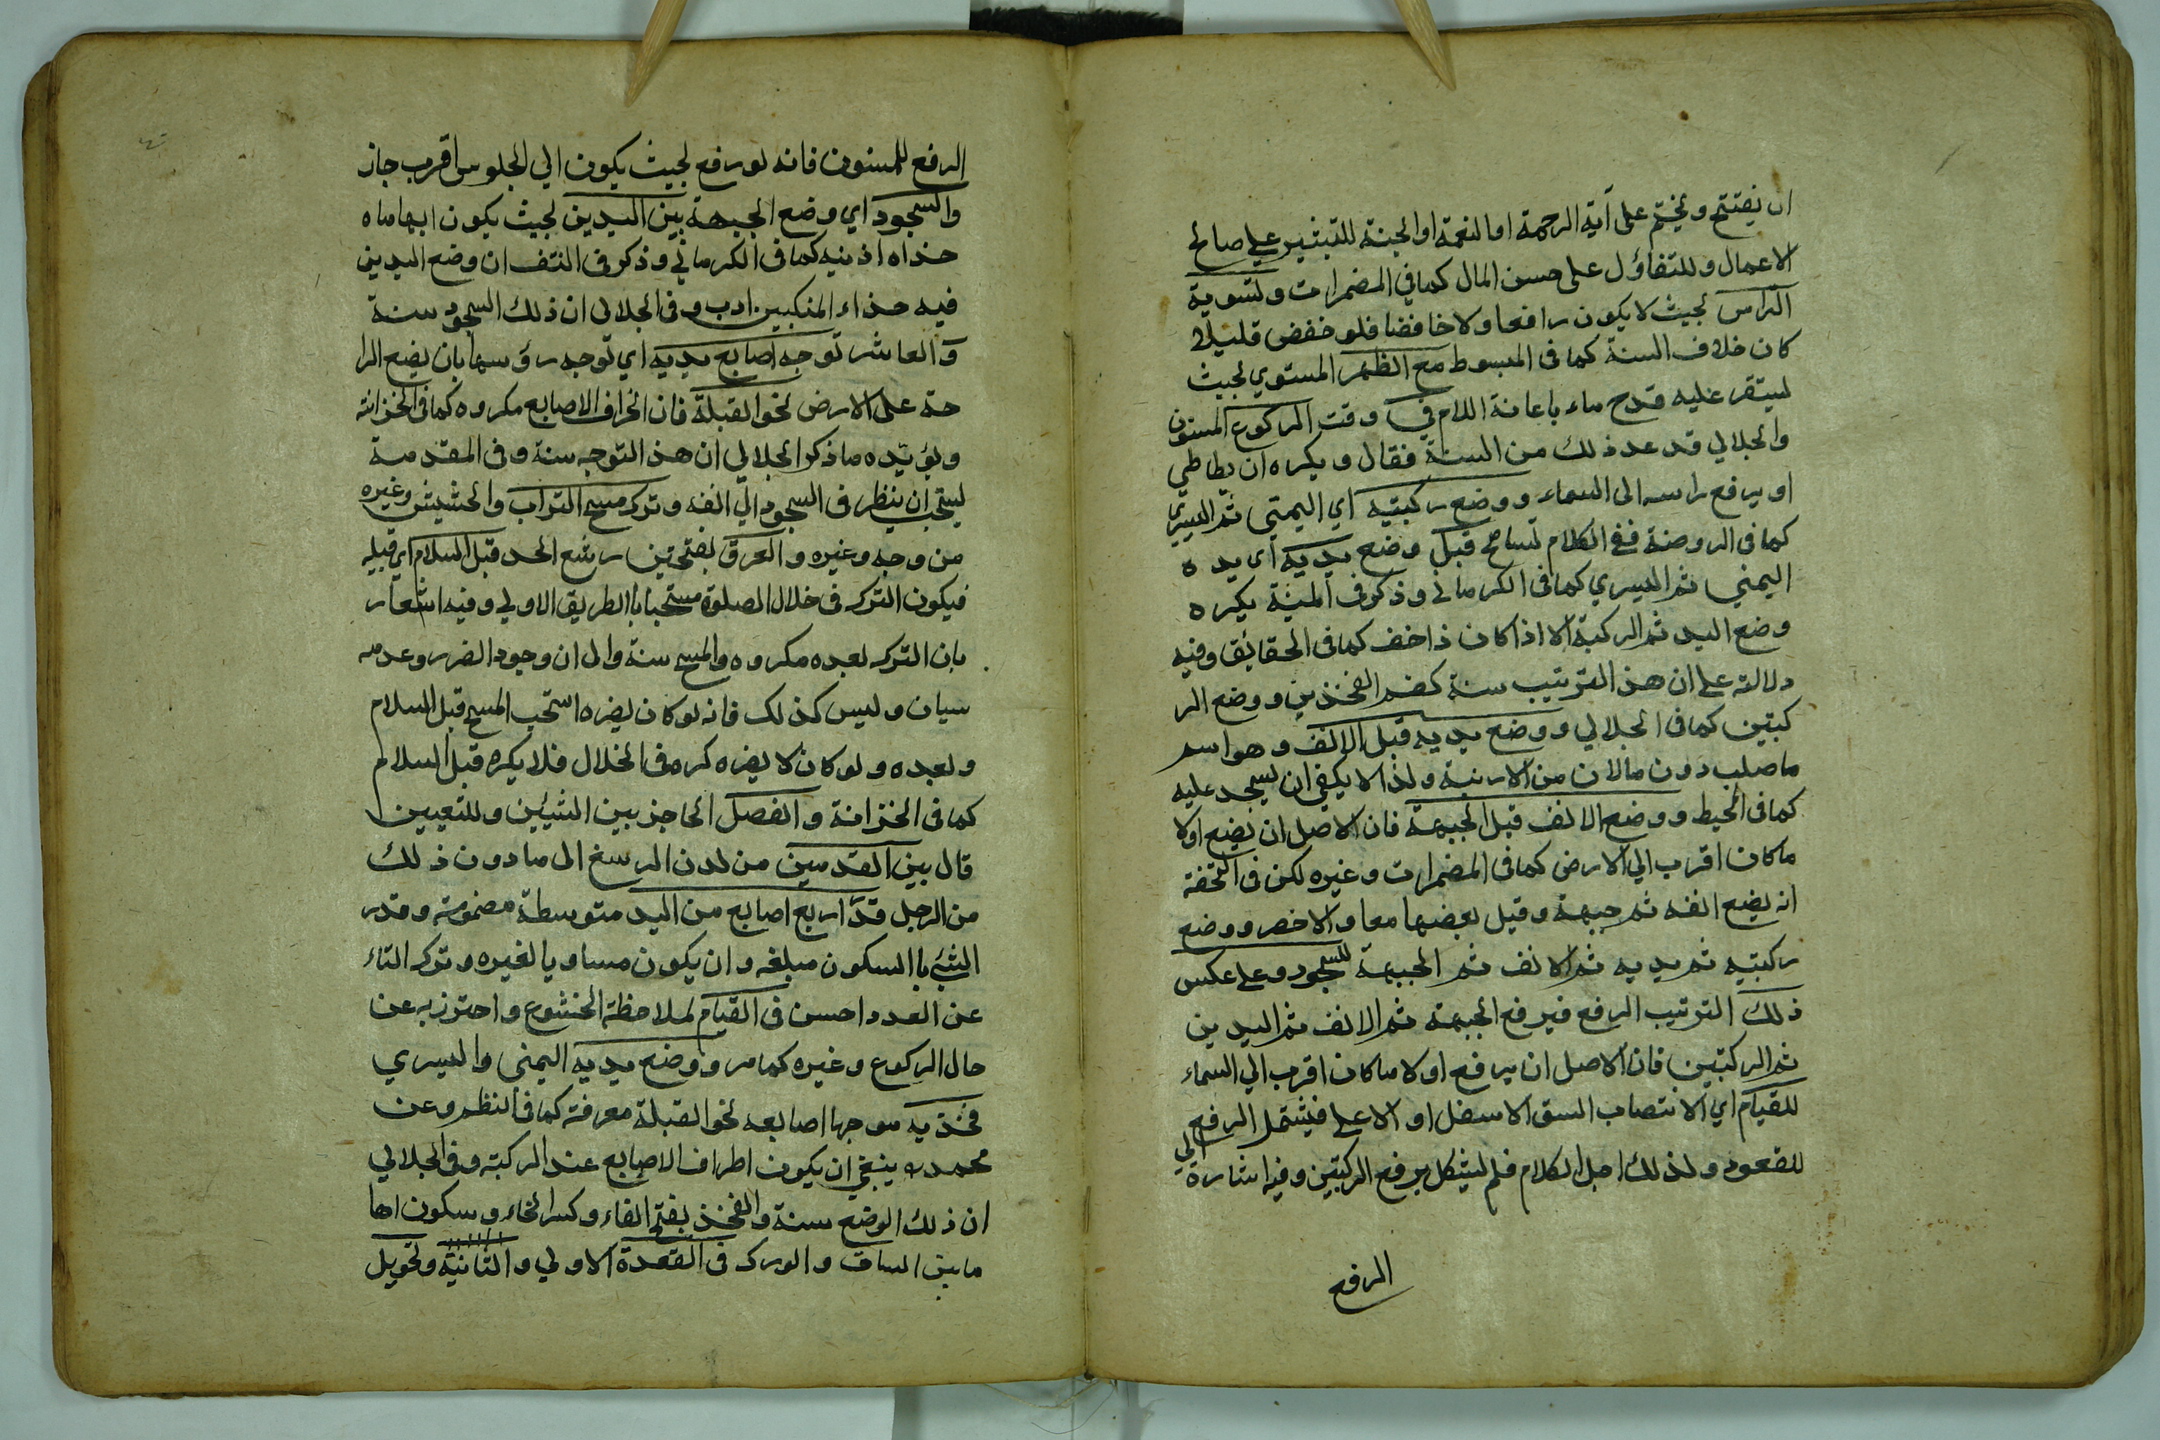 ان يفتتح ويختم على آية الرحمة او النعمة او الجنة للتبشير على صالح
الاعمال وللتفاؤل على حسن المال كما في المضمرات وتسوية
الراس بحيث لا يكون رافعا ولا خافضا فلو خفض قليلا
كان خلاف السنة كما في المبسوط مع الظهر المستوي بحيث
يستقر عليه قدح ماء باعانة اللام في وقت الركوع المسنون
والجلالي قد عد ذلك من السنة فقال ويكره ان يطاطي
او يرفع راسه الى السماء ووضع ركبتيه اي اليمني ثم اليسري
كما في الروضة ففي الكلام تسامح قبل وضع يديه اي يده
اليمني ثم اليسري كما في الكرماني وذكر في المنية يكره
وضع اليد ثم الركبة الا اذا كان ذا خف كما في الحقائق وفيه
دلالة على ان هذا الترتيب سنة كضم الفخذين ووضع الر
كبتين كما في الجلالي ووضع يديه قبل الانف وهو اسم
ما صلب دون ما لان من الارنبة ولذا لا يكفي ان يسجد عليه
كما في المحيط ووضع الانف قبل الجبهة فان الاصل ان يضع اولا
ما كان اقرب الي الارض كما في المضمرات وغيره لكن في التحفة
انه يضع انفه ثم جبهة وقيل بعضها معا والاخصر ووضع
ركبتيه ثم يديه ثم الانف ثم الجبهة للسجود وعلى عكس
ذلك الترتيب الرفع فيرفع الجبهة ثم الانف ثم اليدين
ثم الركبتين فان الاصل ان يرفع اولا ما كان اقرب الي السماء
للقيام اي الانتصاب السق الاسفل او الاعلى فيشتمل الرفع
للقعود ولذلك اجل الكلام فلم يشكل برفع الركبتين وفيه اشارة الي
الرفع
الرفع للمسنون فانه لو رفع بحيث يكون الي الجلوس اقرب جاز
والسجود اي وضع الجبهة بين اليدين بحيث يكون ابهاماه
حذاه اذنيه كما في الكرماني وذكر في النتف ان وضع اليدين
فيه حذاء المنكبين ادب وفي الجلالي ان ذلك السجود سنة
والعاشر توجه اصابع يديه اي توجه رؤسها بان يضع الرا
حة على الارض نحو القبلة فان انحراف الاصابع مكروه كما في الخزانة
ويؤيده ما ذكر الجلالي ان هذا التوجه سنة وفي المقدمة
يستحب ان ينظر في السجود الي انفه وترك مسح التراب والحشيش وغيره
من وجه وغيره والعرق بفتحتين رشح الجلد قبل السلام اي قبيله
فيكون الترك في خلال الصلوة مستحبا باالطريق الاولي وفيه اشعار
بان الترك بعده مكروه والمسح سنة والى ان وجود الضرر وعدمه
سيان وليس كذلك فانه لو كان يضره استحب المسح قبل السلام
وبعده ولو كان لا يضره كره في الخلال فلا يكره قبل السلام
كما في الخزانة والفصل الحاجز بين الشيئين وللتعيين
قال بين القدمين من لدن الرسغ الى ما دون ذلك
من الرجل قدر اربع اصابع من اليد متوسطة مضمومة وقدر
الشيء باالسكون مبلغه وان يكون مساويا لغيره وترك التاء
عن العدد احسن في القيام لملاحظة الخشوع واحترز به عن
حال الركوع وغيره كما مر ووضع يديه اليمني واليسري
فخذيه موجها اصابعه نحو القبلة معرفة كما في النظم وعن
محمد ره ينبغي ان يكون اطراف الاصابع عند الركبة وفي الجلالي
ان ذلك الوضع سنة والفخذ بفتح الفاء وكسر الخاء وسكون اها
ما بين الساق والورك في القعدة الاولي والثانية وتحويل